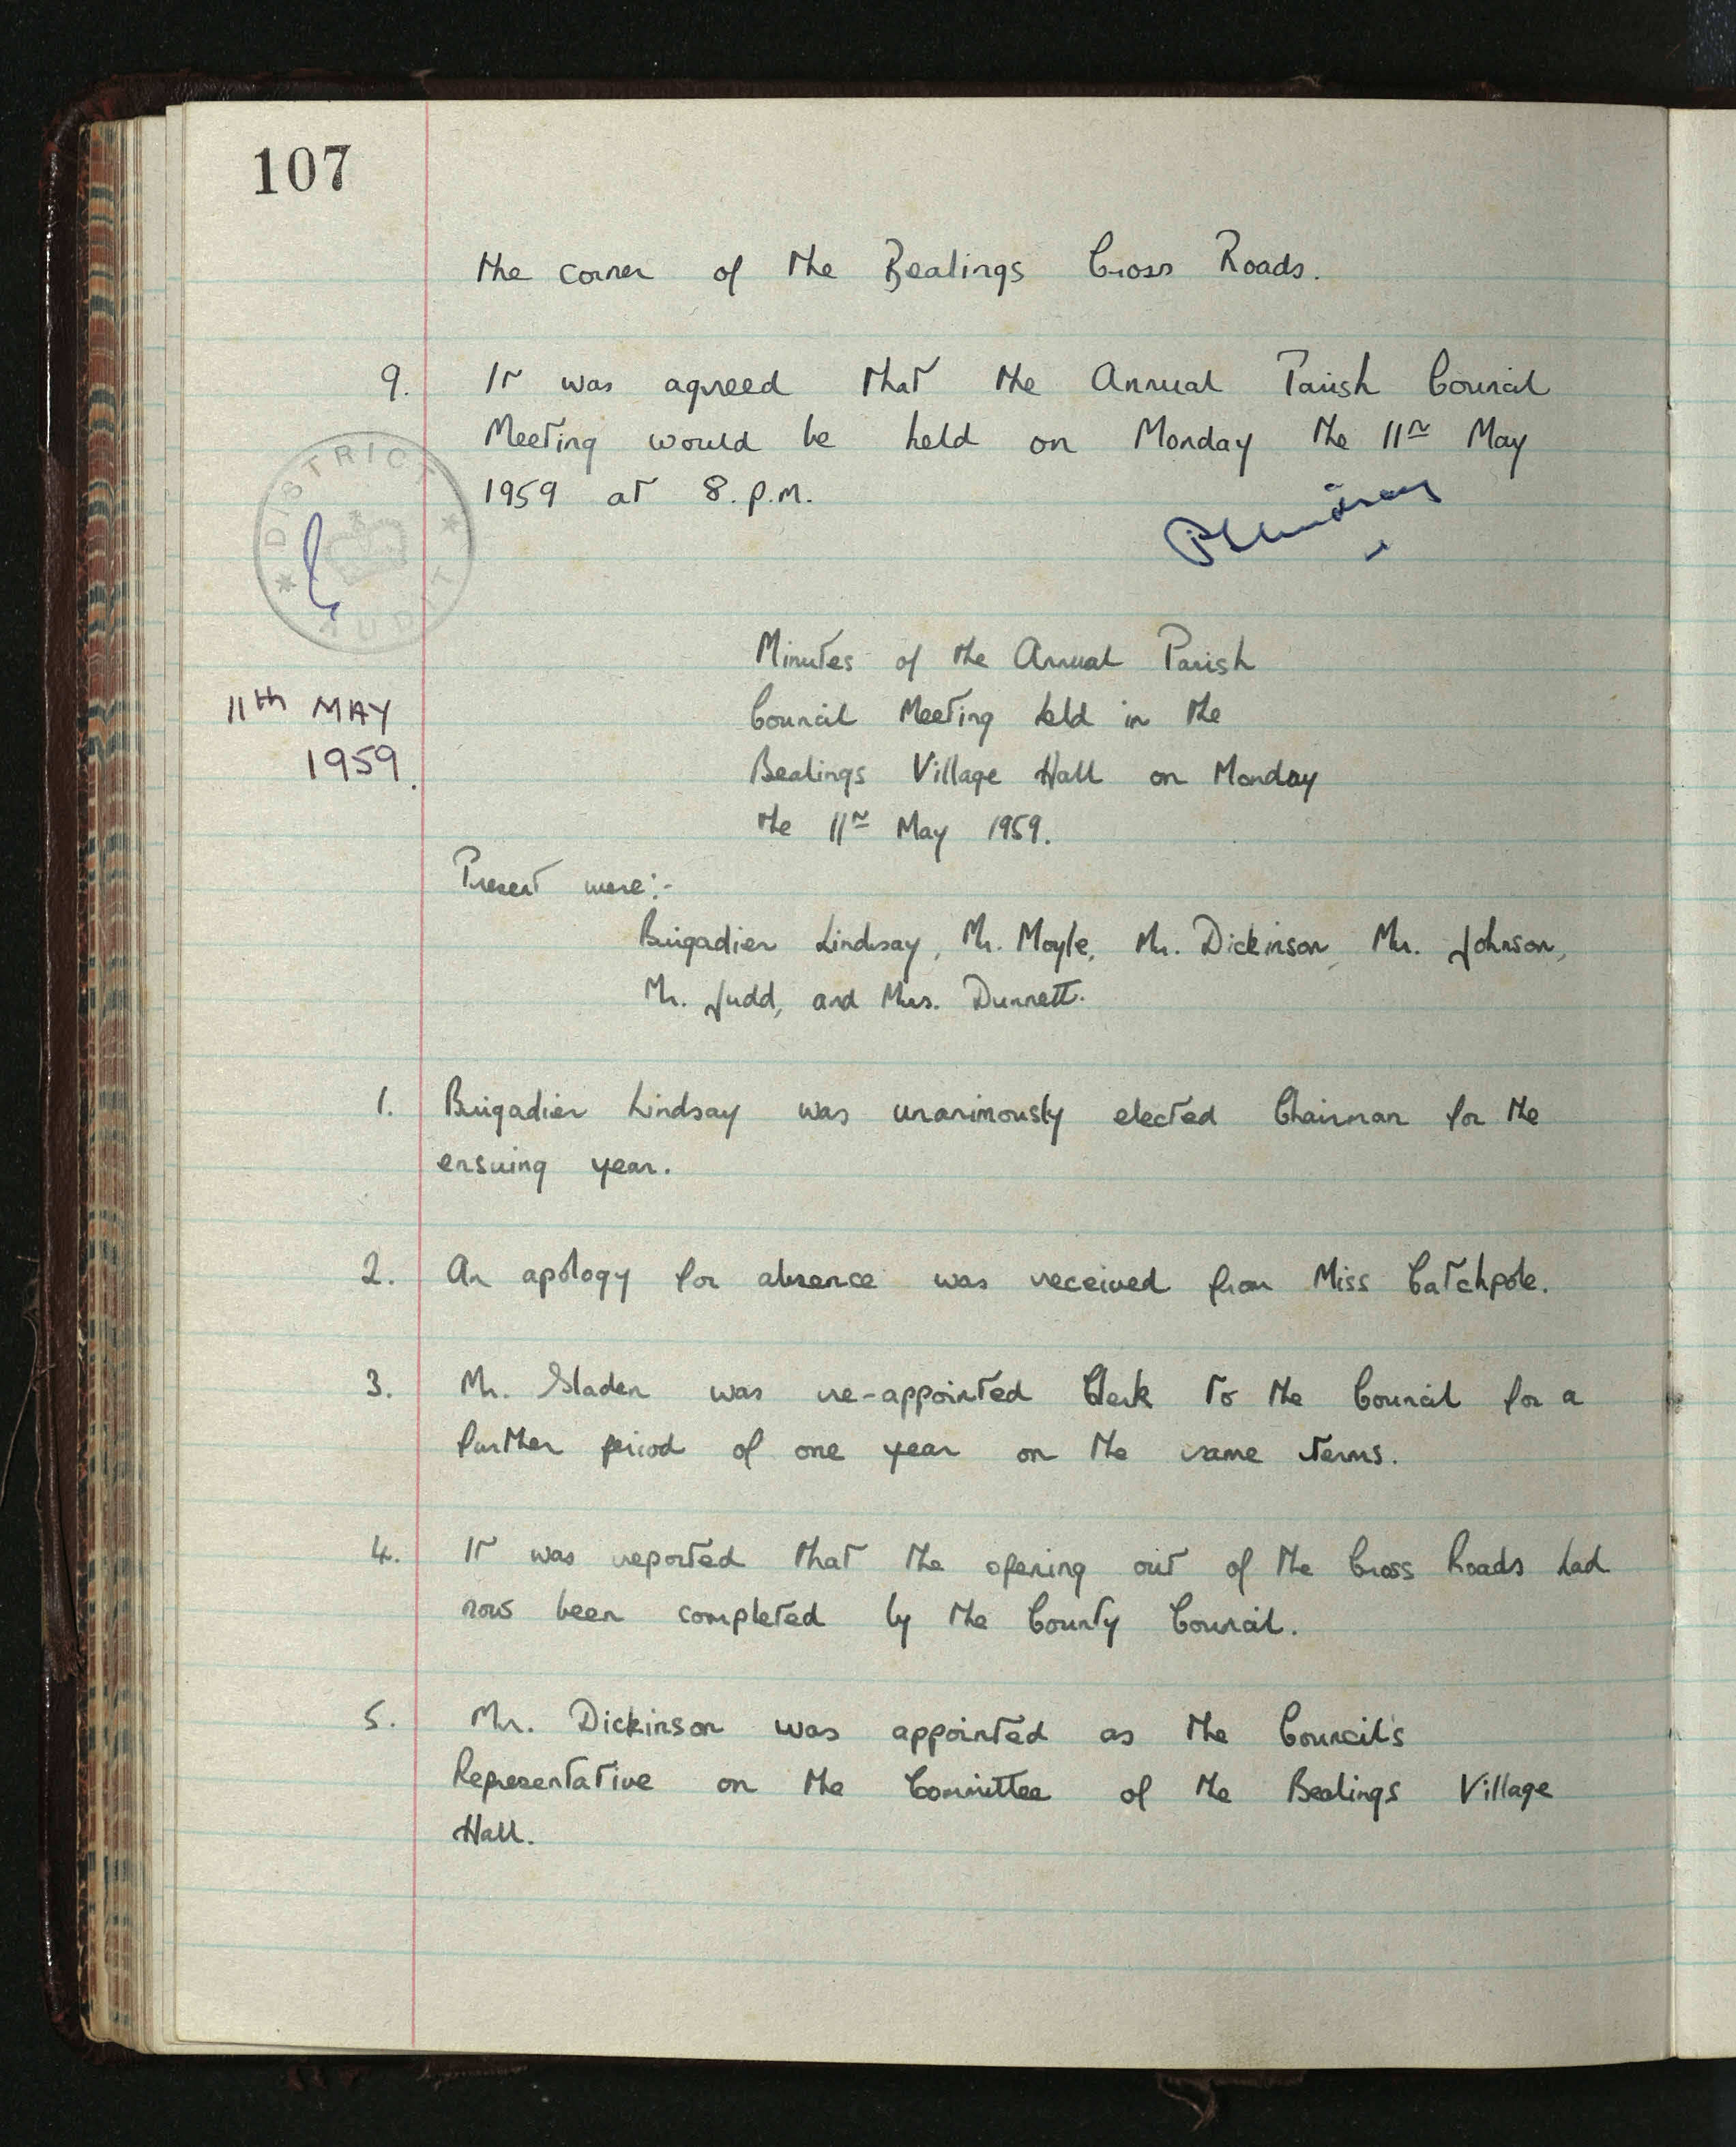 107
the corner of the Bealings Cross Roads.
9. It was agreed that the Annual Parish Council
Meeting would be held on Monday the 11th May
1959 at 8. p.m.
DISTRICT AUDIT
11th MAY
1959.
Minutes of the Annual Parish
Council Meeting held in the
Bealings Village Hall on Monday
the 11th May 1959.
Present were:-
Brigadier Lindsay, Mr. Moyle, Mr. Dickinson, Mr. Johnson,
Mr. Judd, and Mrs. Dunnett.
1. Brigadier Lindsay was unanimously elected Chairman for the
ensuing year.
2. An apology for absence was received from Miss Catchpole.
3. Mr. Sladen was re-appointed Clerk to the Council for a
further period of one year on the same terms.
4. It was reported that the opening out of the Cross Roads had
now been completed by the County Council.
5. Mr. Dickinson was appointed as the Council's
Representative on the Committee of the Bealings Village
Hall.